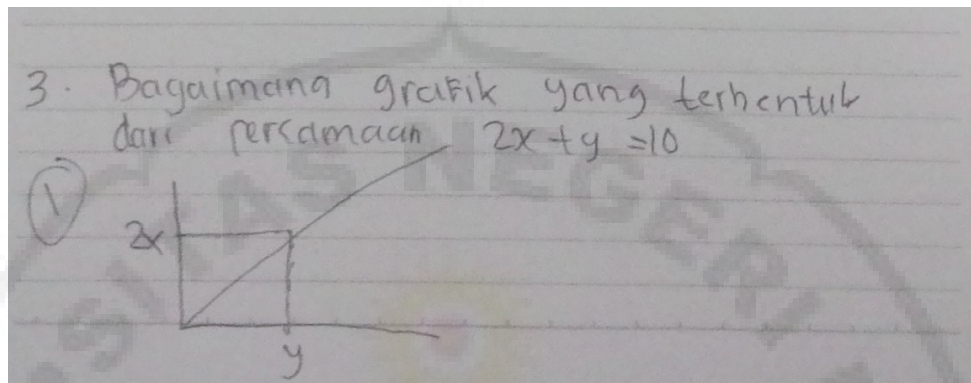 3. Bagaimana grafik yang terbentuk
dari persamaan 2x + y = 10
1
2x
y
SITAS NEGERI